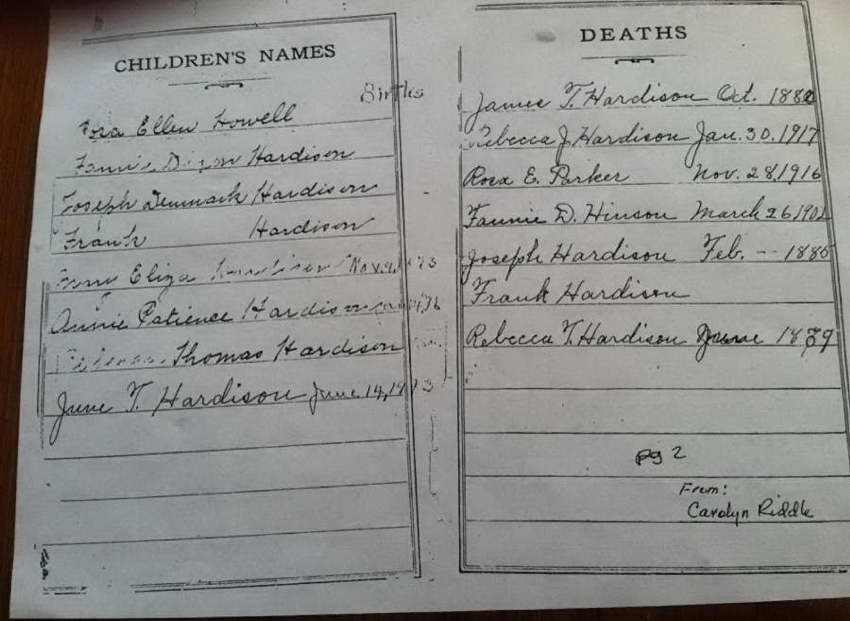 CHILDREN'S NAMES
Births
Rosa Ellen Howell
Fannie Hardison
Joseph Denmark Hardison
Frank Hardison
Eliza Nov. 9,
Annie Patience Hardison
Thomas Hardison
June T. Hardison June 14,
DEATHS
James T. Hardison Oct.
Rebecca J. Hardison Jan. 30, 1917
Rosa E. Parker Nov. 28, 1916
Fannie D. Hinson March 26,
Joseph Hardison Feb. -- 1885
Frank Hardison
Rebecca T. Hardison June
pg 2
From:
Carolyn Riddle